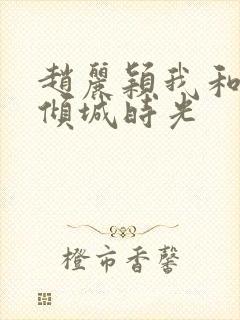 趙麗穎我和
傾城時光
橙市香馨